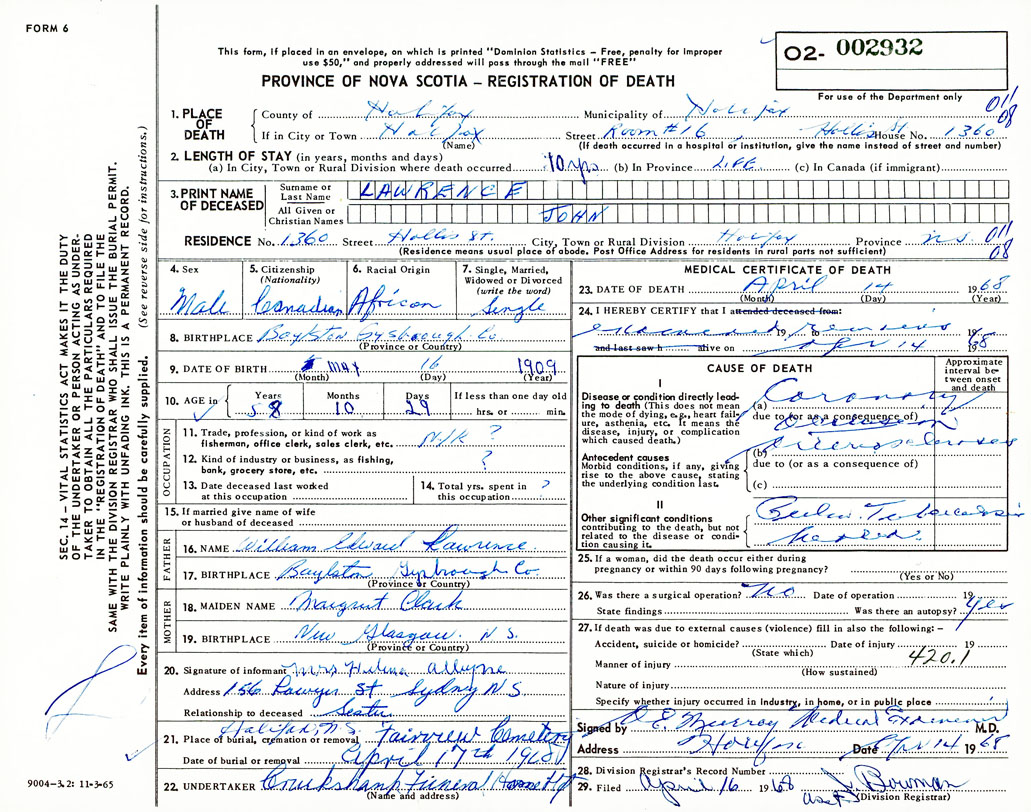 FORM 6
This form, if placed in an envelope, on which is printed "Dominion Statistics – Free, penalty for improper
use $50," and properly addressed will pass through the mail "FREE"
O2- 002932
PROVINCE OF NOVA SCOTIA – REGISTRATION OF DEATH
For use of the Department only
011
08
1. PLACE OF DEATH
County of Halifax Municipality of Halifax
If in City or Town Halifax Street Room #16, Hollis St House No. 1360
(Name) (If death occurred in a hospital or institution, give the name instead of street and number)
2. LENGTH OF STAY (in years, months and days)
(a) In City, Town or Rural Division where death occurred 10 yrs (b) In Province LIFE (c) In Canada (if immigrant)
3. PRINT NAME OF DECEASED
Surname or Last Name LAWRENCE
All Given or Christian Names JOHN
RESIDENCE No. 1360 Street Hollis St. City, Town or Rural Division Halifax Province N.S. 011
08
(Residence means usual place of abode. Post Office Address for residents in rural parts not sufficient)
4. Sex
Male
5. Citizenship
(Nationality)
Canadian
6. Racial Origin
African
7. Single, Married,
Widowed or Divorced
(write the word)
Single
8. BIRTHPLACE Boylston Gysborough Co
(Province or Country)
9. DATE OF BIRTH MAY 16 1909
(Month) (Day) (Year)
10. AGE in Years 58 Months 10 Days 29 If less than one day old
hrs. or min.
OCCUPATION
11. Trade, profession, or kind of work as
fisherman, office clerk, sales clerk, etc. N/K ?
12. Kind of industry or business, as fishing,
bank, grocery store, etc. ?
13. Date deceased last worked
at this occupation
14. Total yrs. spent in
this occupation ?
15. If married give name of wife
or husband of deceased
FATHER
16. NAME William Edward Lawrence
17. BIRTHPLACE Boylston Gysborough Co.
(Province or Country)
MOTHER
18. MAIDEN NAME Margaret Clark
19. BIRTHPLACE New Glasgow. N S.
(Province or Country)
20. Signature of informant Mrs Helena Alleyne
Address 156 St Sydney N.S
Relationship to deceased Sister
21. Place of burial, cremation or removal Halifax, N.S. Fairview Cemetery
Date of burial or removal April 17th 1968
22. UNDERTAKER Cruikshank Funeral Home Hfx
(Name and address)
MEDICAL CERTIFICATE OF DEATH
23. DATE OF DEATH April 14 1968
(Month) (Day) (Year)
24. I HEREBY CERTIFY that I attended deceased from:
examined remains 19 to 19
and last saw h alive on Apr 14 1968
CAUSE OF DEATH
Approximate
interval be-
tween onset
and death
I
Disease or condition directly lead-
ing to death (This does not mean
the mode of dying, e.g., heart fail-
ure, asthenia, etc. It means the
disease, injury, or complication
which caused death.)
(a) Coronary
due to (or as a consequence of)
Antecedent causes
Morbid conditions, if any, giving
rise to the above cause, stating
the underlying condition last.
(b)
due to (or as a consequence of)
(c)
II
Other significant conditions
contributing to the death, but not
related to the disease or condi-
tion causing it.
Tuberculosis
healed.
25. If a woman, did the death occur either during
pregnancy or within 90 days following pregnancy?
(Yes or No)
26. Was there a surgical operation? No Date of operation 19
State findings Was there an autopsy? Yes
27. If death was due to external causes (violence) fill in also the following: –
Accident, suicide or homicide? Date of injury 19
(State which)
420.1
Manner of injury
(How sustained)
Nature of injury
Specify whether injury occurred in industry, in home, or in public place
Signed by D E Murray Medical Examiner M.D.
Address Halifax Date Apr 14 1968
28. Division Registrar's Record Number
29. Filed April 16 1968 J. Bowman
Asst Division Registrar
SEC. 14 – VITAL STATISTICS ACT MAKES IT THE DUTY
OF THE UNDERTAKER OR PERSON ACTING AS UNDER-
TAKER TO OBTAIN ALL THE PARTICULARS REQUIRED
IN THE "REGISTRATION OF DEATH" AND TO FILE THE
SAME WITH THE DIVISION REGISTRAR WHO SHALL ISSUE THE BURIAL PERMIT.
WRITE PLAINLY WITH UNFADING INK. THIS IS A PERMANENT RECORD.
Every item of information should be carefully supplied. (See reverse side for instructions.)
9004–3.2: 11-3-65